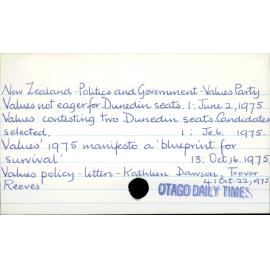 New Zealand - Politics and Government - Values Party
Values not eager for Dunedin seats. 1: June 2, 1975
Values contesting two Dunedin seats. Candidates
selected. 1: Je.6. 1975.
Values' 1975 manifesto a 'blueprint for
survival' 13: Oct.16.1975
Values policy - letters - Kathleen Dawson, Trevor
Reeves 4: Oct.22,1975
OTAGO DAILY TIMES